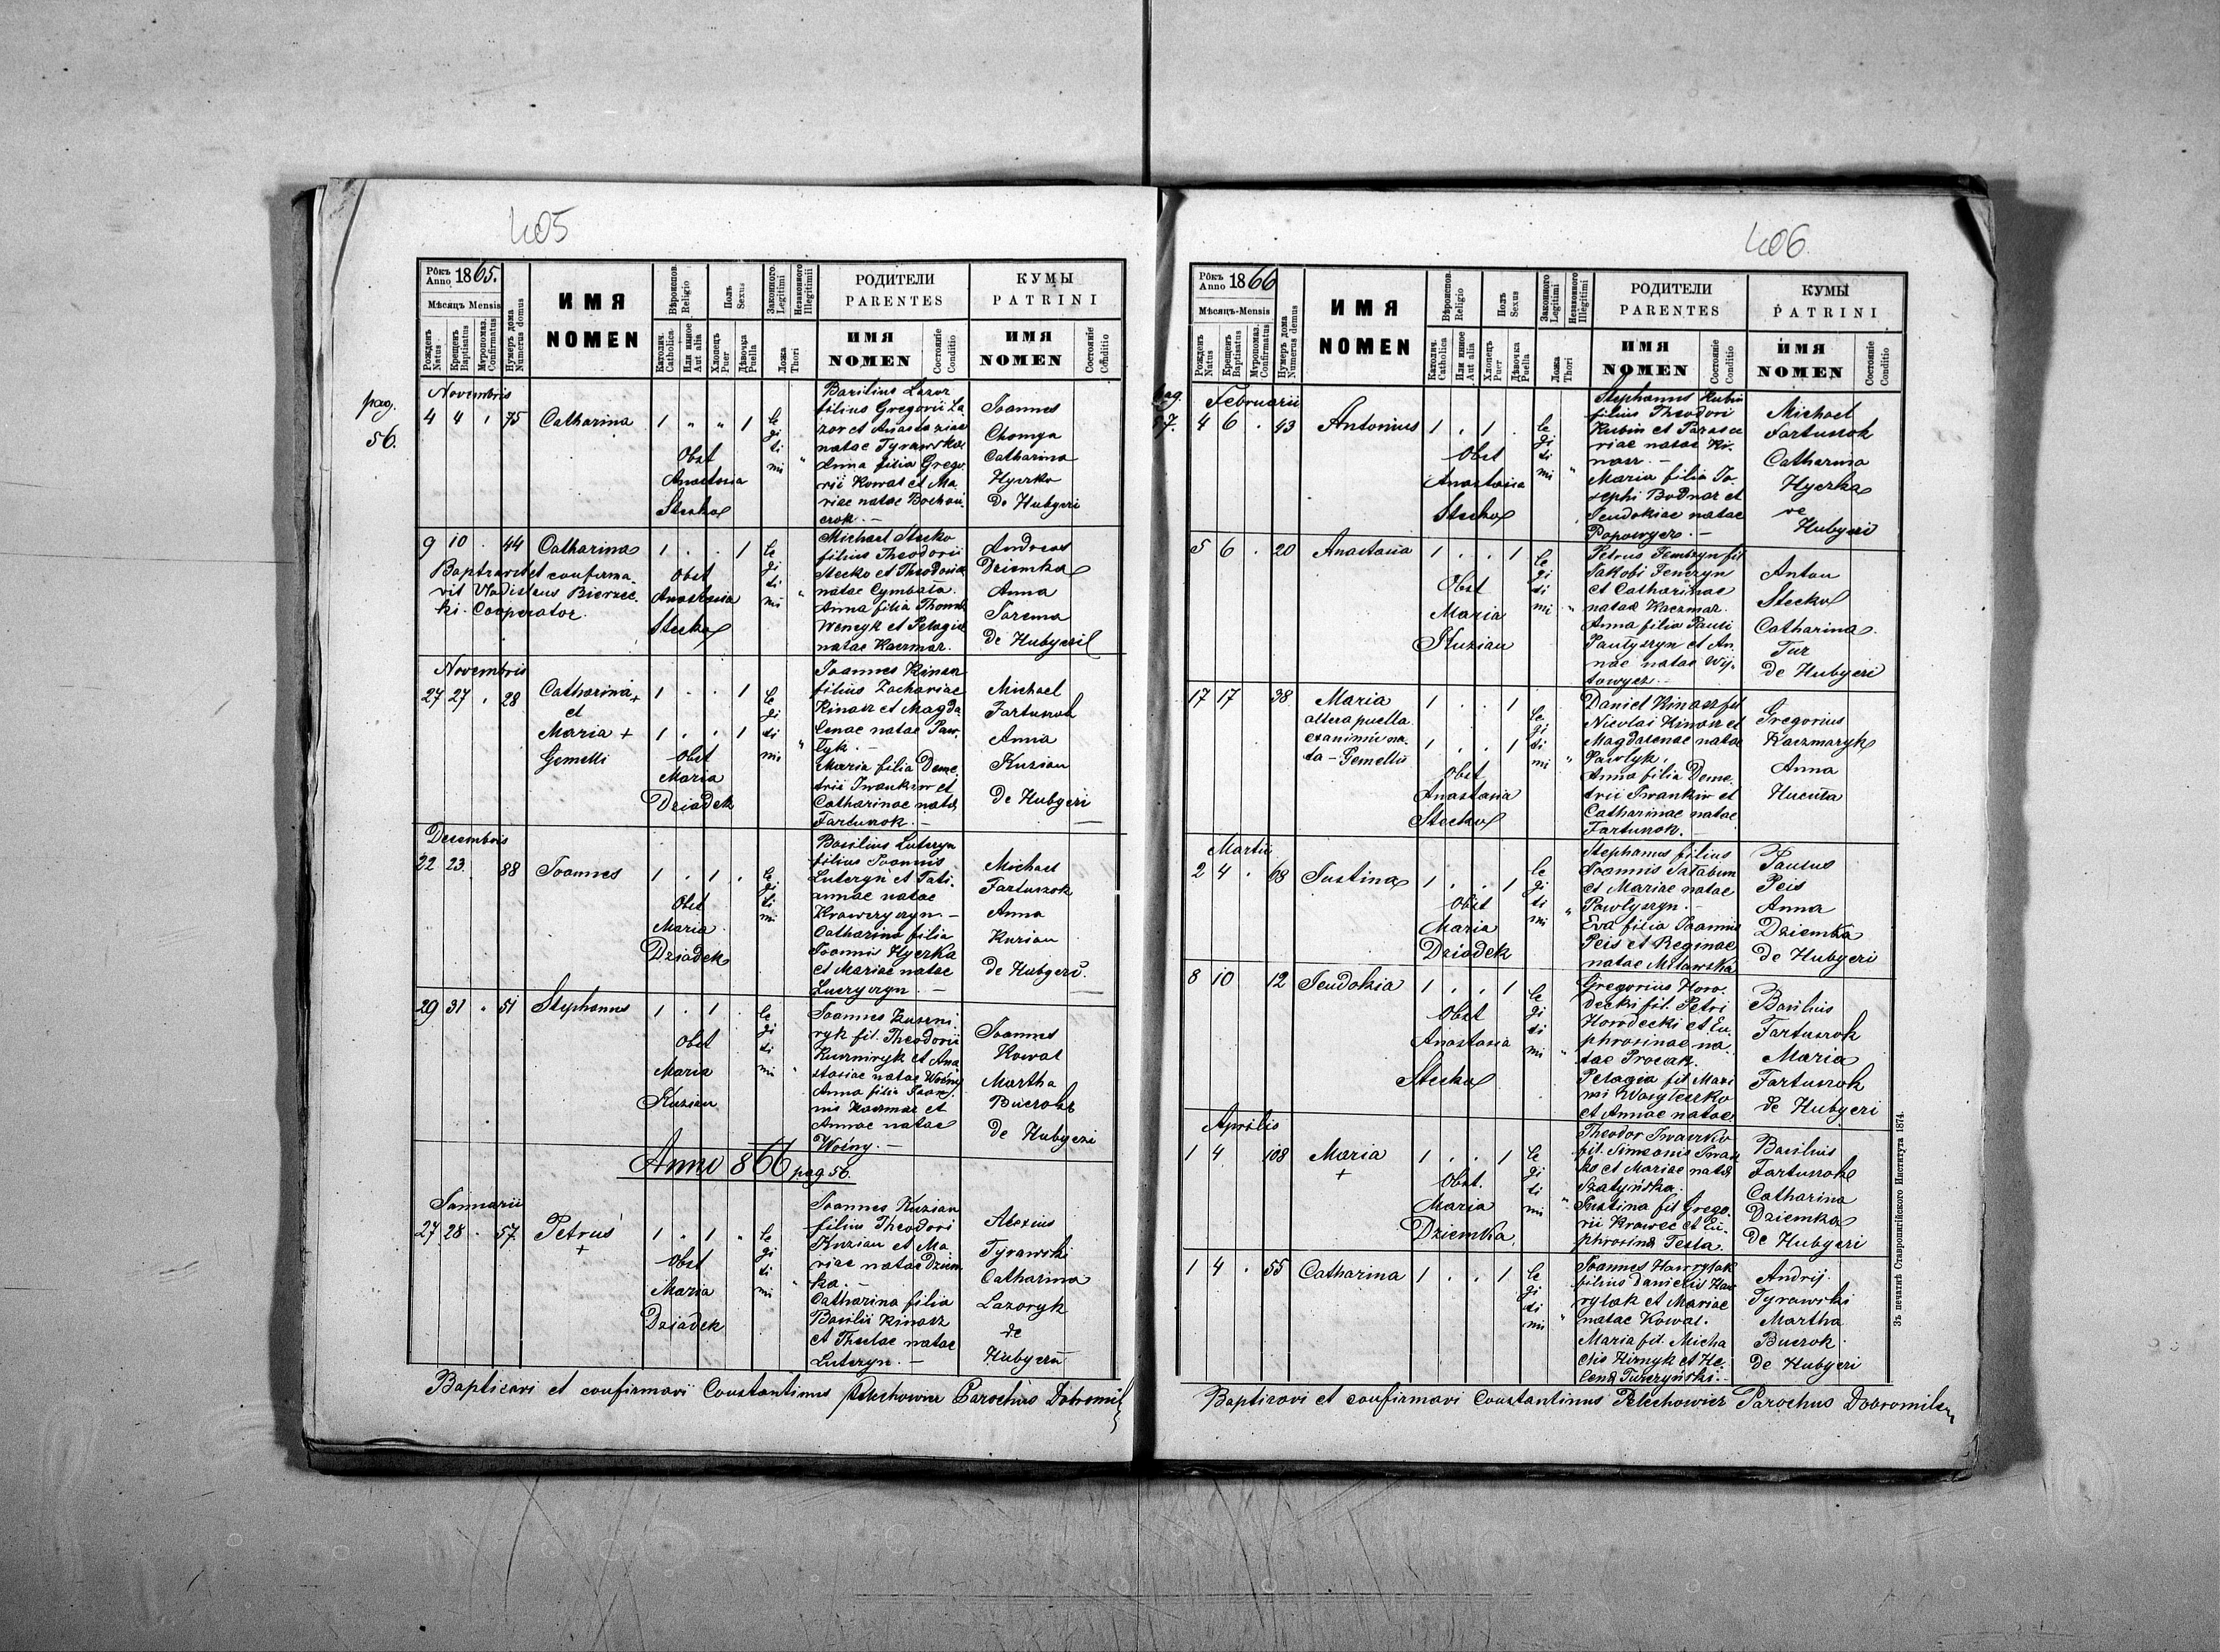 405
Рôкъ Anno 1865.
Мѣсяцъ Mensis
Рожденъ Natus
Крещенъ Baptisatus
Муропомаз. Confirmatus
Нумеръ дома Numerus domus
ИМЯ
NOMEN
Вѣроиспов. Religio
Католич. Catholica
Или инное Aut alia
Полъ Sexus
Хлопець Puer
Дѣвочка Puella
Законного Legitimi
Незаконного Illegitimi
Ложа Thori
РОДИТЕЛИ
PARENTES
ИМЯ
NOMEN
Состоянiе Conditio
КУМЫ
PATRINI
ИМЯ
NOMEN
Состоянiе Conditio
pag.
56.
Novembris
4 4 75 Catharina 1 " " 1
legitimi
Obst
Anastasia
Stecko
Basilius Lazor
filius Gregorii La
zor et Anastasiae
natae Tyrawska
Anna filia Grego
rii Kowal et Ma
riae natae
Joannes
Chomya
Catharina
Hyerko
De Hubyeri
9 10 44 Catharina 1 . . 1
legitimi
Baptisavit et confirma
vit Vladislaus
ki. Cooperator.
Obst
Anastasia
Stecko
Michael Stecko
filius Theodorii
Stecko et Theodosia
natae Cymbała.
Anna filia Thomae
Wencyk et Pelagiae
natae Kaczmar.
Andreas
Dziemka
Anna
Jarema
De Hubyeri
Novembris
27 27 28 Catharina +
et
Maria +
Gemelli
1 . . 1
1 . . 1
legitimi
Obst
Maria
Dziadek
Joannes Kinasz
filius Zachariae
Kinasz et Magda
lenae natae Paw
lyk.
Maria filia Deme
trii Iwankiw et
Catharinae natae
Fartuszok.
Michael
Fartuszok
Anna
Kuzian
De Hubyeri
Decembris
22 23. 88 Joannes 1 . 1 .
legitimi
Obst
Maria
Dziadek
Basilius Luteryn
filius Joannis
Luteryn et Tati
annae natae
Krawczyszyn
Catharina filia
Joannis Hyerka
et Mariae natae
Michael
Fartuszok
Anna
Kuzian
de Hubyeri.
29 31 51 Stephanus 1 . 1 .
legitimi
Obst
Maria
Kuzian
Joannes Kuszni
ryk fil. Theodorii
Kuszniryk et Ana
stasiae natae Woźny
Anna filia Joan
nis Kaczmar et
Annae natae
Woźny.
Joannes
Kowal
Martha
Bucrok
De Hubyeri
Anno 866 pag 56.
Januarii
27 28 57 Petrus 1 . 1
+
legitimi
Obst
Maria
Dziadek
Joannes Kuzian
filius Theodori
Kuzian et Ma
riae natae Dziem
ka.
Catharina filia
Basilii Kinasz
et Theclae natae
Luteryn.
Alexius
Tyrawski
Catharina
Lazoryk
de
Hubyeri
Baptisavi et confirmavi Constantinus Pelechowicz Parochus Dobromil
406.
Рôкъ Anno 1866
Мѣсяцъ-Mensis
Рожденъ Natus
Крещенъ Baptisatus
Муропомаз. Confirmatus
Нумеръ дома Numerus domus
ИМЯ
NOMEN
Вѣроиспов. Religio
Католич. Catholica
Или инное Aut alia
Полъ Sexus
Хлопець Puer
Дѣвочка Puella
Законного Legitimi
Незаконного Illegitimi
Ложа Thori
РОДИТЕЛИ
PARENTES
ИМЯ
NOMEN
Состоянiе Conditio
КУМЫ
PATRINI
ИМЯ
NOMEN
Состоянiе Conditio
pag.
57.
Februarii
4 6 . 43 Antonius 1 . 1 .
legitimi
Obst
Anastasia
Stecko
Stephanus Kubin
filius Theodori
Kubin et Parasce
viae natae Ki
nasz.
Maria filia Jo
sephi Bodnar et
Jeudokiae natae
Popowycz.
Michael
Fartuszok
Catharina
Hyerka
de
Hubyeri
5 6 . 20 Anastasia 1 . . 1
legitimi
Obst
Maria
Kuzian
Petrus Fenczyn fil
Jakobi Fenczyn
et Catharinae
natae Kaczmar.
Anna filia Pauli
Pawłyszyn et An
nae natae Wij
towycz.
Antou
Stecko
Catharina
Tur
de Hubyeri
17 17 38 Maria
altera puella
exanimis na
ta - Gemellis
1 . . 1
1 . . 1
legitimi
Obst
Anastasia
Stecko
Daniel Kinasz fil
Nicolai Kinasz et
Magdalenae natae
Pawlyk.
Anna filia Deme
trii Iwankiw et
Catharinae natae
Fartuszok.
Gregorius
Kaczmaryk
Anna
Hucuła
Martii
2 4 . 68 Justina 1 . . 1
legitimi
Obst
Maria
Dziadek
Stephanus filius
Joannis Bałabun
et Mariae natae
Pawlyszyn.
Eva filia Joannis
Peis et Reginae
natae Milawska
Paulus
Peis
Anna
Dziemka
de Hubyeri
8 10 12 Jeudokia 1 . . 1
legitimi
Obst
Anastasia
Stecko
Gregorius Horo
decki fil. Petri
Horodecki et Eu
phrosinae na
tae Procak.
Pelagia fil Maxi
mi Wasyleczko
et Annae natae
Basilius
Fartuszok
Maria
Fartuszok
de Hubyeri
Aprilis
1 4 108 Maria 1 . . 1
+
legitimi
Obst.
Maria
Dziemka
Theodor Iwaszko
fil. Simeonis Iwasz
ko et Mariae natae
Szatyńska.
Justina fil Grego
rii Krawec et Eu
phrosinae Testa.
Basilius
Fartuszok
Catharina
Dziemka
de Hubyeri
1 4 . 55 Catharina 1 . . 1
legitimi
Joannes Hawrylak
filius Danielis Haw
rylak et Mariae
natae Kowal.
Maria fil. Micha
elis Hirnyk et He
lenae Turczyński.
Andrij
Tyrawski
Martha
Bucrok
De Hubyeri
Baptisavi et confirmavi Constantinus Pelechowicz Parochus Dobromil
Зъ печатнѣ Ставропигiйского Института 1874.